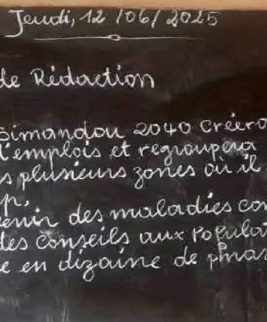 Jeudi, 12/06/2025
de Rédaction
Simandou 2040 Créera
l'emplois et regroupera
s plusieurs zones où il
p.
enir des maladies con
des conseils aux Populat
e en dizaine de phras